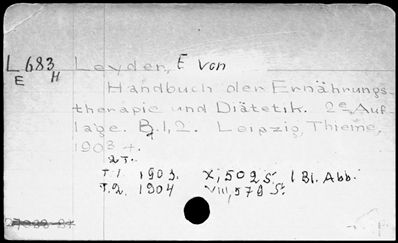 L683 Leyden, E von
E H
Handbuch der Ernährungs-
therapie und Diätetik. 2e Auf-
lage. B. 1, 2. Leipzig, Thieme,
1903 +.
2 T.
T.1. 1903. X, 502 S. 1 Bl. Abb.
T.2. 1904 VIII, 578 S.